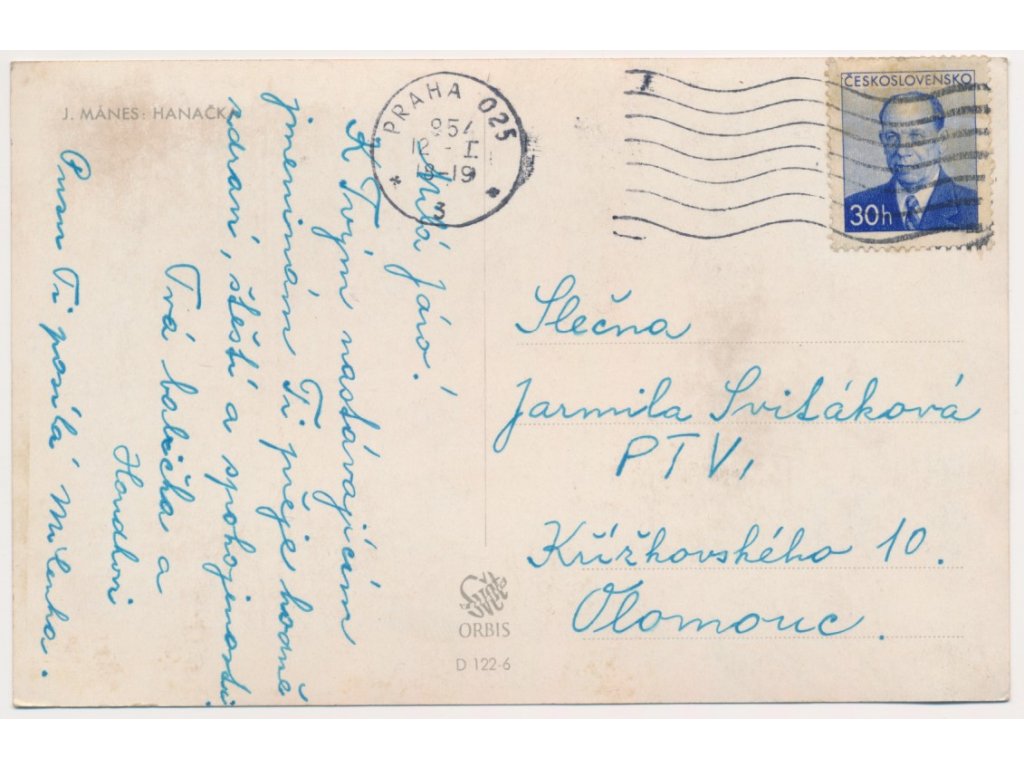 J. MÁNES: HANAČK
PRAHA 025
954
12 - I
18-19
3
ČESKOSLOVENSKO
30h
Milá Járo!
K Tvým nastávajícím
jmeninám Ti přeje hodně
zdraví, štěstí a spokojenosti
Tvá babička a
Pusu Ti posílá Milenka.
Slečna
Jarmila Svitáková
PTV,
Křížkovského 10.
Olomouc.
ORBIS
D 122-6